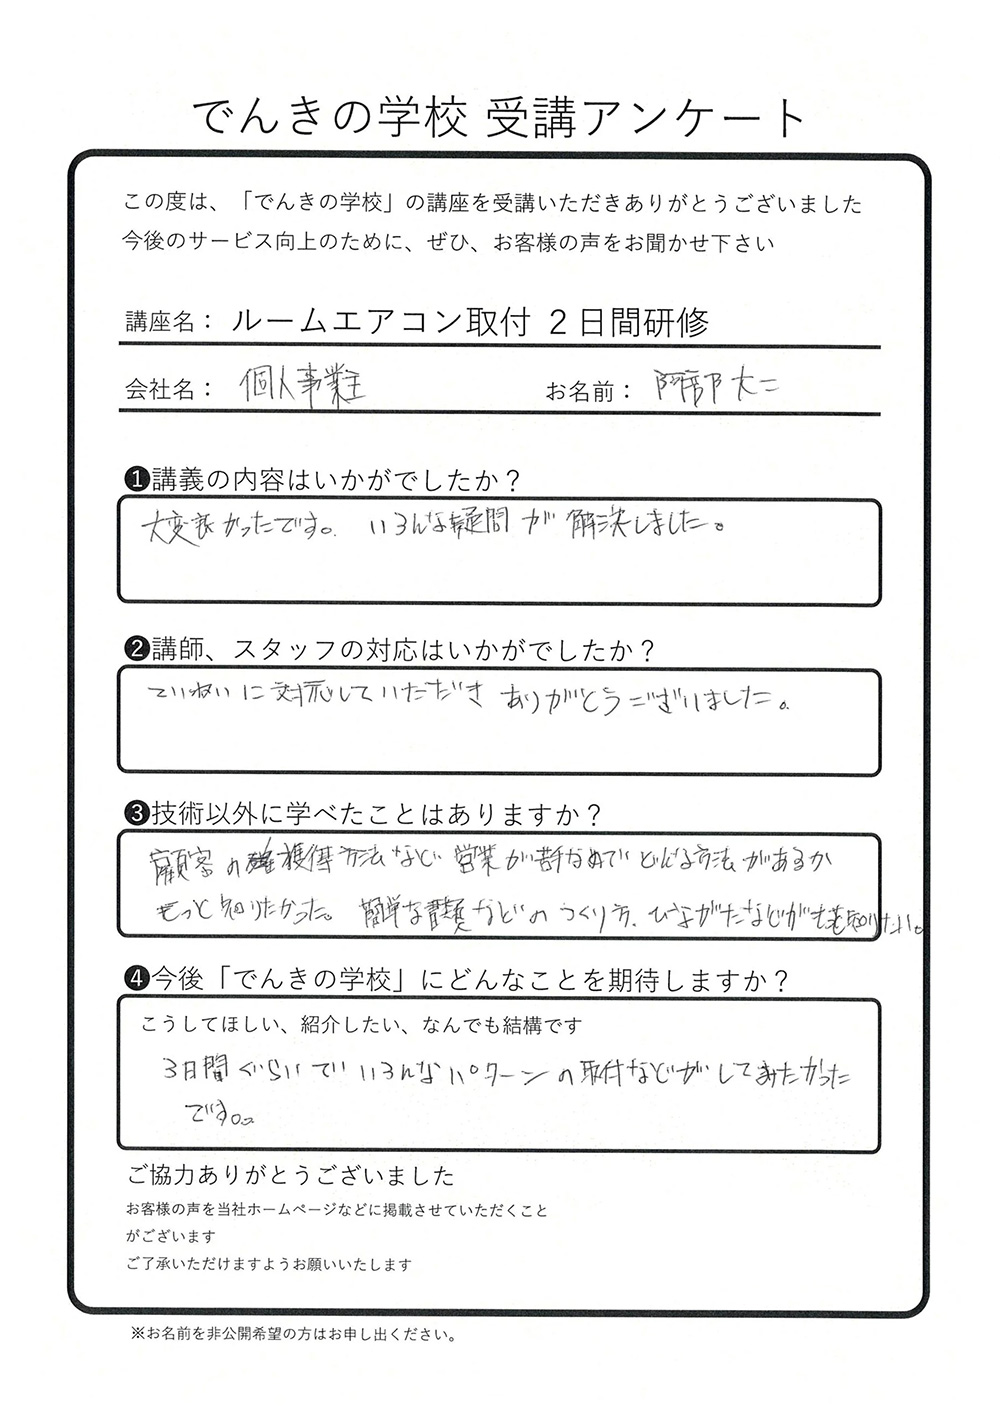 でんきの学校 受講アンケート
この度は、「でんきの学校」の講座を受講いただきありがとうございました
今後のサービス向上のために、ぜひ、お客様の声をお聞かせ下さい
講座名： ルームエアコン取付 2日間研修
会社名： 個人事業主 お名前： 阿部大二
❶講義の内容はいかがでしたか？
大変良かったです。いろんな疑問が解決しました。
❷講師、スタッフの対応はいかがでしたか？
ていねいに対応していただきありがとうございました。
❸技術以外に学べたことはありますか？
顧客の獲得方法など営業が苦手なのでどんな方法があるか
もっと知りたかった。簡単な書類などのつくり方、ひながたなどが知りたい。
❹今後「でんきの学校」にどんなことを期待しますか？
こうしてほしい、紹介したい、なんでも結構です
3日間ぐらいでいろんなパターンの取付などがしてみたかった
です。
ご協力ありがとうございました
お客様の声を当社ホームページなどに掲載させていただくこと
がございます
ご了承いただけますようお願いいたします
※お名前を非公開希望の方はお申し出ください。